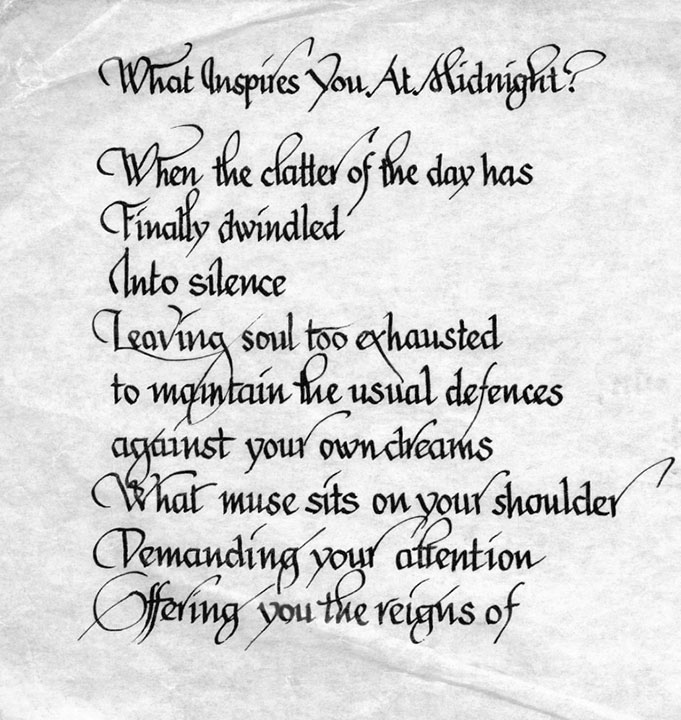 What Inspires You At Midnight?
When the clatter of the day has
Finally dwindled
Into silence
Leaving soul too exhausted
to maintain the usual defences
against your own dreams
What muse sits on your shoulder
Demanding your attention
Offering you the reigns of